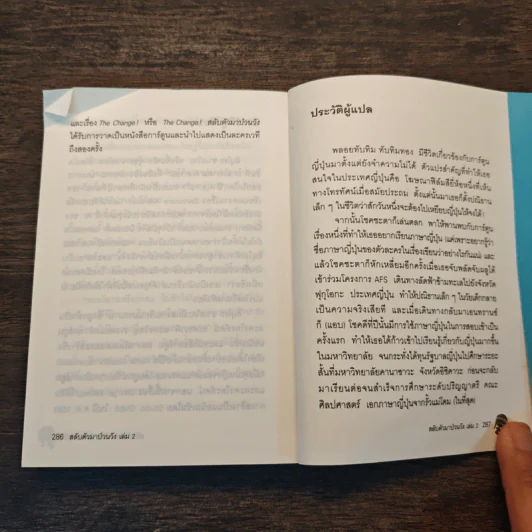 และเรื่อง The Change! หรือ The Change! สลับตัวมาป่วนวัง
ได้รับการวาดเป็นหนังสือการ์ตูนและนำไปแสดงเป็นละครเวที
ถึงสองครั้ง
286 สลับตัวมาป่วนวัง เล่ม 2
ประวัติผู้แปล
พลอยทับทิม ทับทิมทอง มีชีวิตเกี่ยวข้องกับการ์ตูน
ญี่ปุ่นมาตั้งแต่ยังจำความไม่ได้ ตัวแปรสำคัญที่ทำให้เธอ
สนใจในประเทศญี่ปุ่นคือ โฆษณาฟิล์มสียี่ห้อหนึ่งที่เห็น
ทางโทรทัศน์เมื่อสมัยประถม ตั้งแต่นั้นมาเธอก็ตั้งปณิธาน
เล็ก ๆ ในชีวิตว่าสักวันหนึ่งจะต้องไปเหยียบญี่ปุ่นให้จงได้!
จากนั้นโชคชะตาก็เล่นตลก พาให้พานพบกับการ์ตูน
เรื่องหนึ่งที่ทำให้เธออยากเรียนภาษาญี่ปุ่น (แค่เพราะอยากรู้ว่า
ชื่อภาษาญี่ปุ่นของตัวละครในเรื่องเขียนว่าอย่างไรกันแน่) และ
แล้วโชคชะตาก็หักเหลี่ยมอีกครั้งเมื่อเธอจับพลัดจับผลูได้
เข้าร่วมโครงการ AFS เดินทางลัดฟ้าข้ามทะเลไปยังจังหวัด
ฟุกุโอกะ ประเทศญี่ปุ่น ทำให้ปณิธานเล็ก ๆ ในวัยเด็กกลาย
เป็นความจริงเสียที และเมื่อเดินทางกลับมาเอนทรานซ์
ก็ (แอบ) โชคดีที่ปีนั้นมีการใช้ภาษาญี่ปุ่นในการสอบเข้าเป็น
ครั้งแรก ทำให้เธอได้ก้าวเข้าไปเรียนรู้เกี่ยวกับญี่ปุ่นมากขึ้น
ในมหาวิทยาลัย จนกระทั่งได้ทุนรัฐบาลญี่ปุ่นไปศึกษาระยะ
สั้นที่มหาวิทยาลัยคานาซาวะ จังหวัดอิชิคาวะ ก่อนจะกลับ
มาเรียนต่อจนสำเร็จการศึกษาระดับปริญญาตรี คณะ
ศิลปศาสตร์ เอกภาษาญี่ปุ่นจากรั้วแม่โดม (ในที่สุด)
สลับตัวมาป่วนวัง เล่ม 2 287